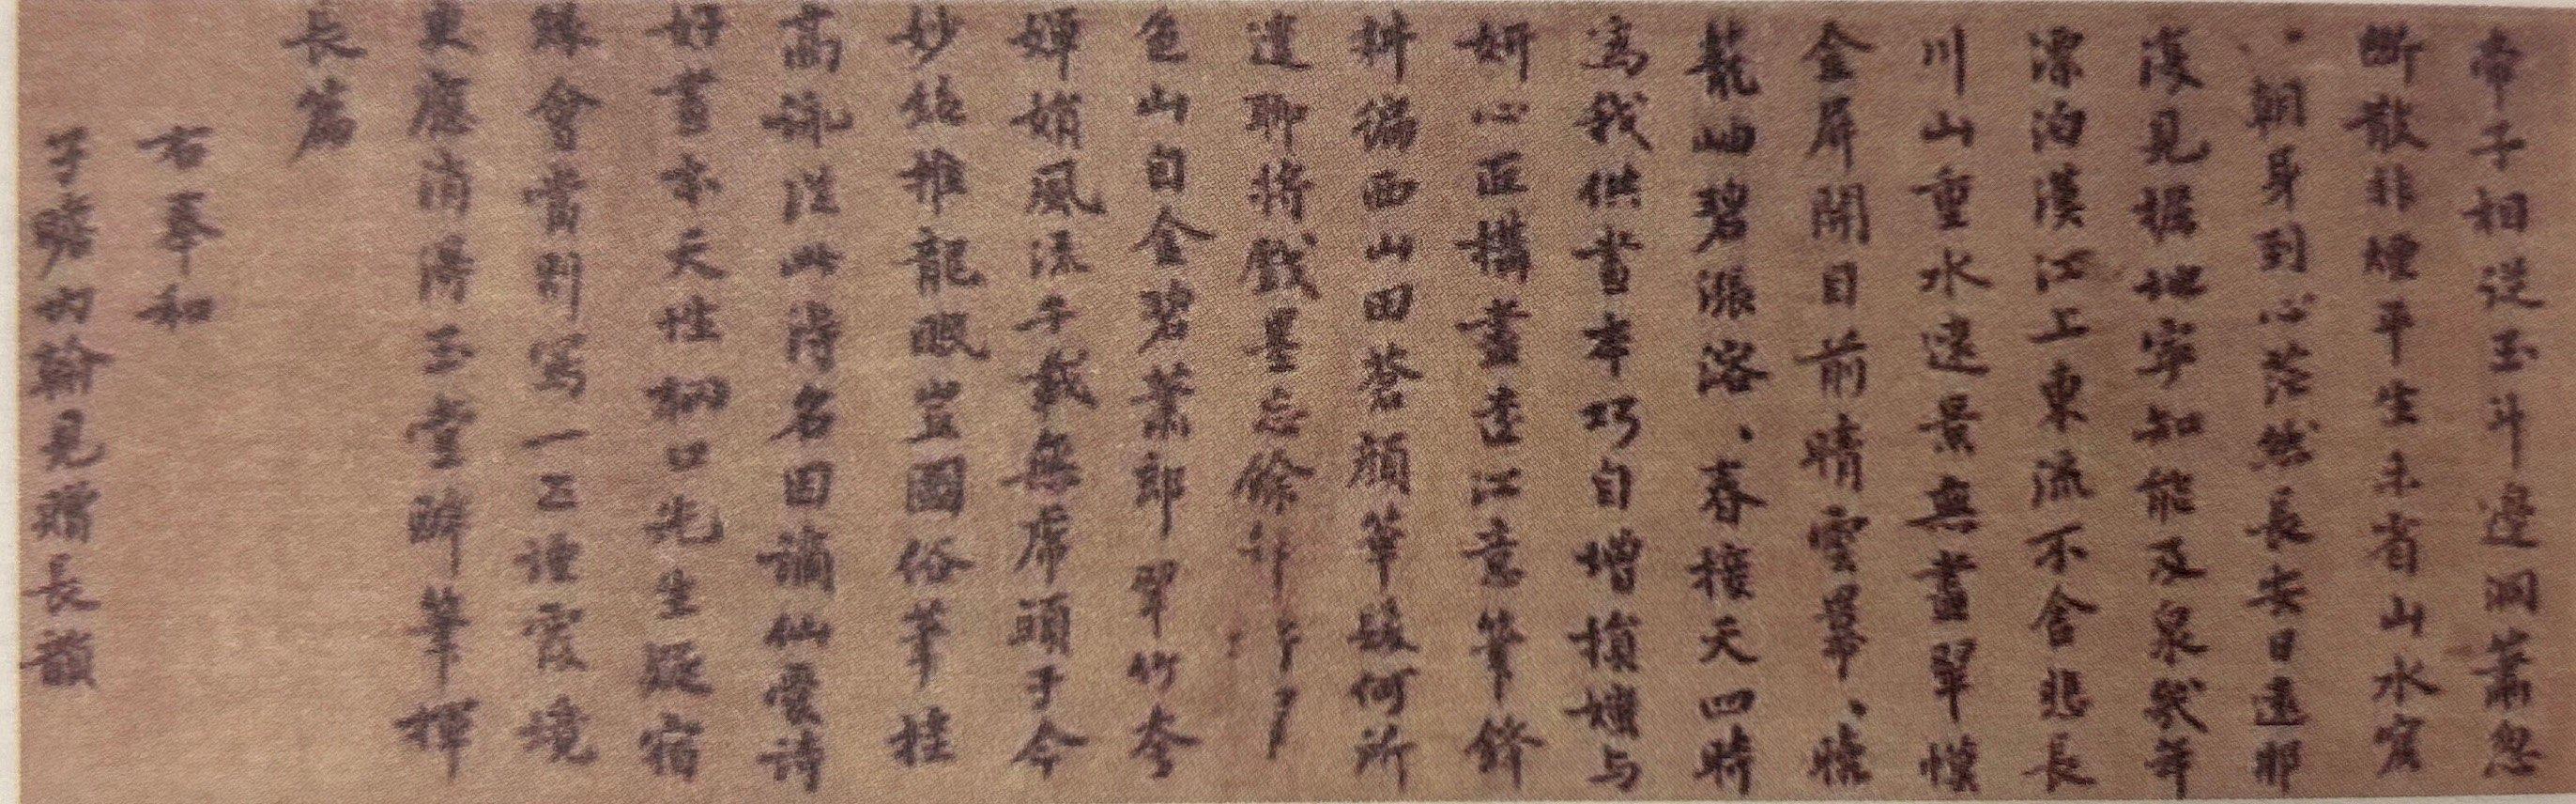 帝子相從玉斗邊洞簫忽
斷散非煙平生未省山水窟
一朝身到心茫然長安日遠那
復見掘地寧知能及泉幾年
漂泊漢江上東流不舍悲長
川山重水遠景無盡翠幙
金屏開目前晴雲冪、曉
籠岫碧漲溶、春接天四時
為我供畫本巧自增損媸与
妍心匠構盡遠江意筆鋒
耕徧西山田蒼顏華髮何所
遣聊將戲墨忘餘
色山自金碧蕭郎翠竹夸
嬋娟風流千載無虎頭于今
妙絕推龍眠豈圖俗筆挂
高詠從此得名因謫仙愛詩
好畫本天性輞口先生疑宿
緣會當別寫一匹煙霞境
更應消得玉堂醉筆揮
長篇
右奉和
子瞻內翰見贈長韻